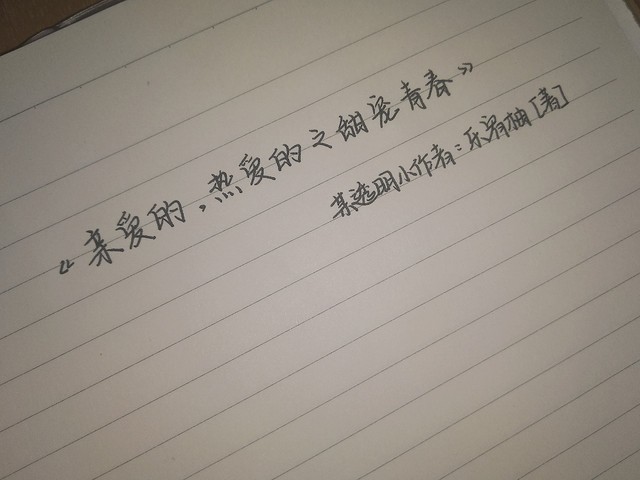 《亲爱的，热爱的之甜宠青春》
某透明小作者：乐宥柚[著]